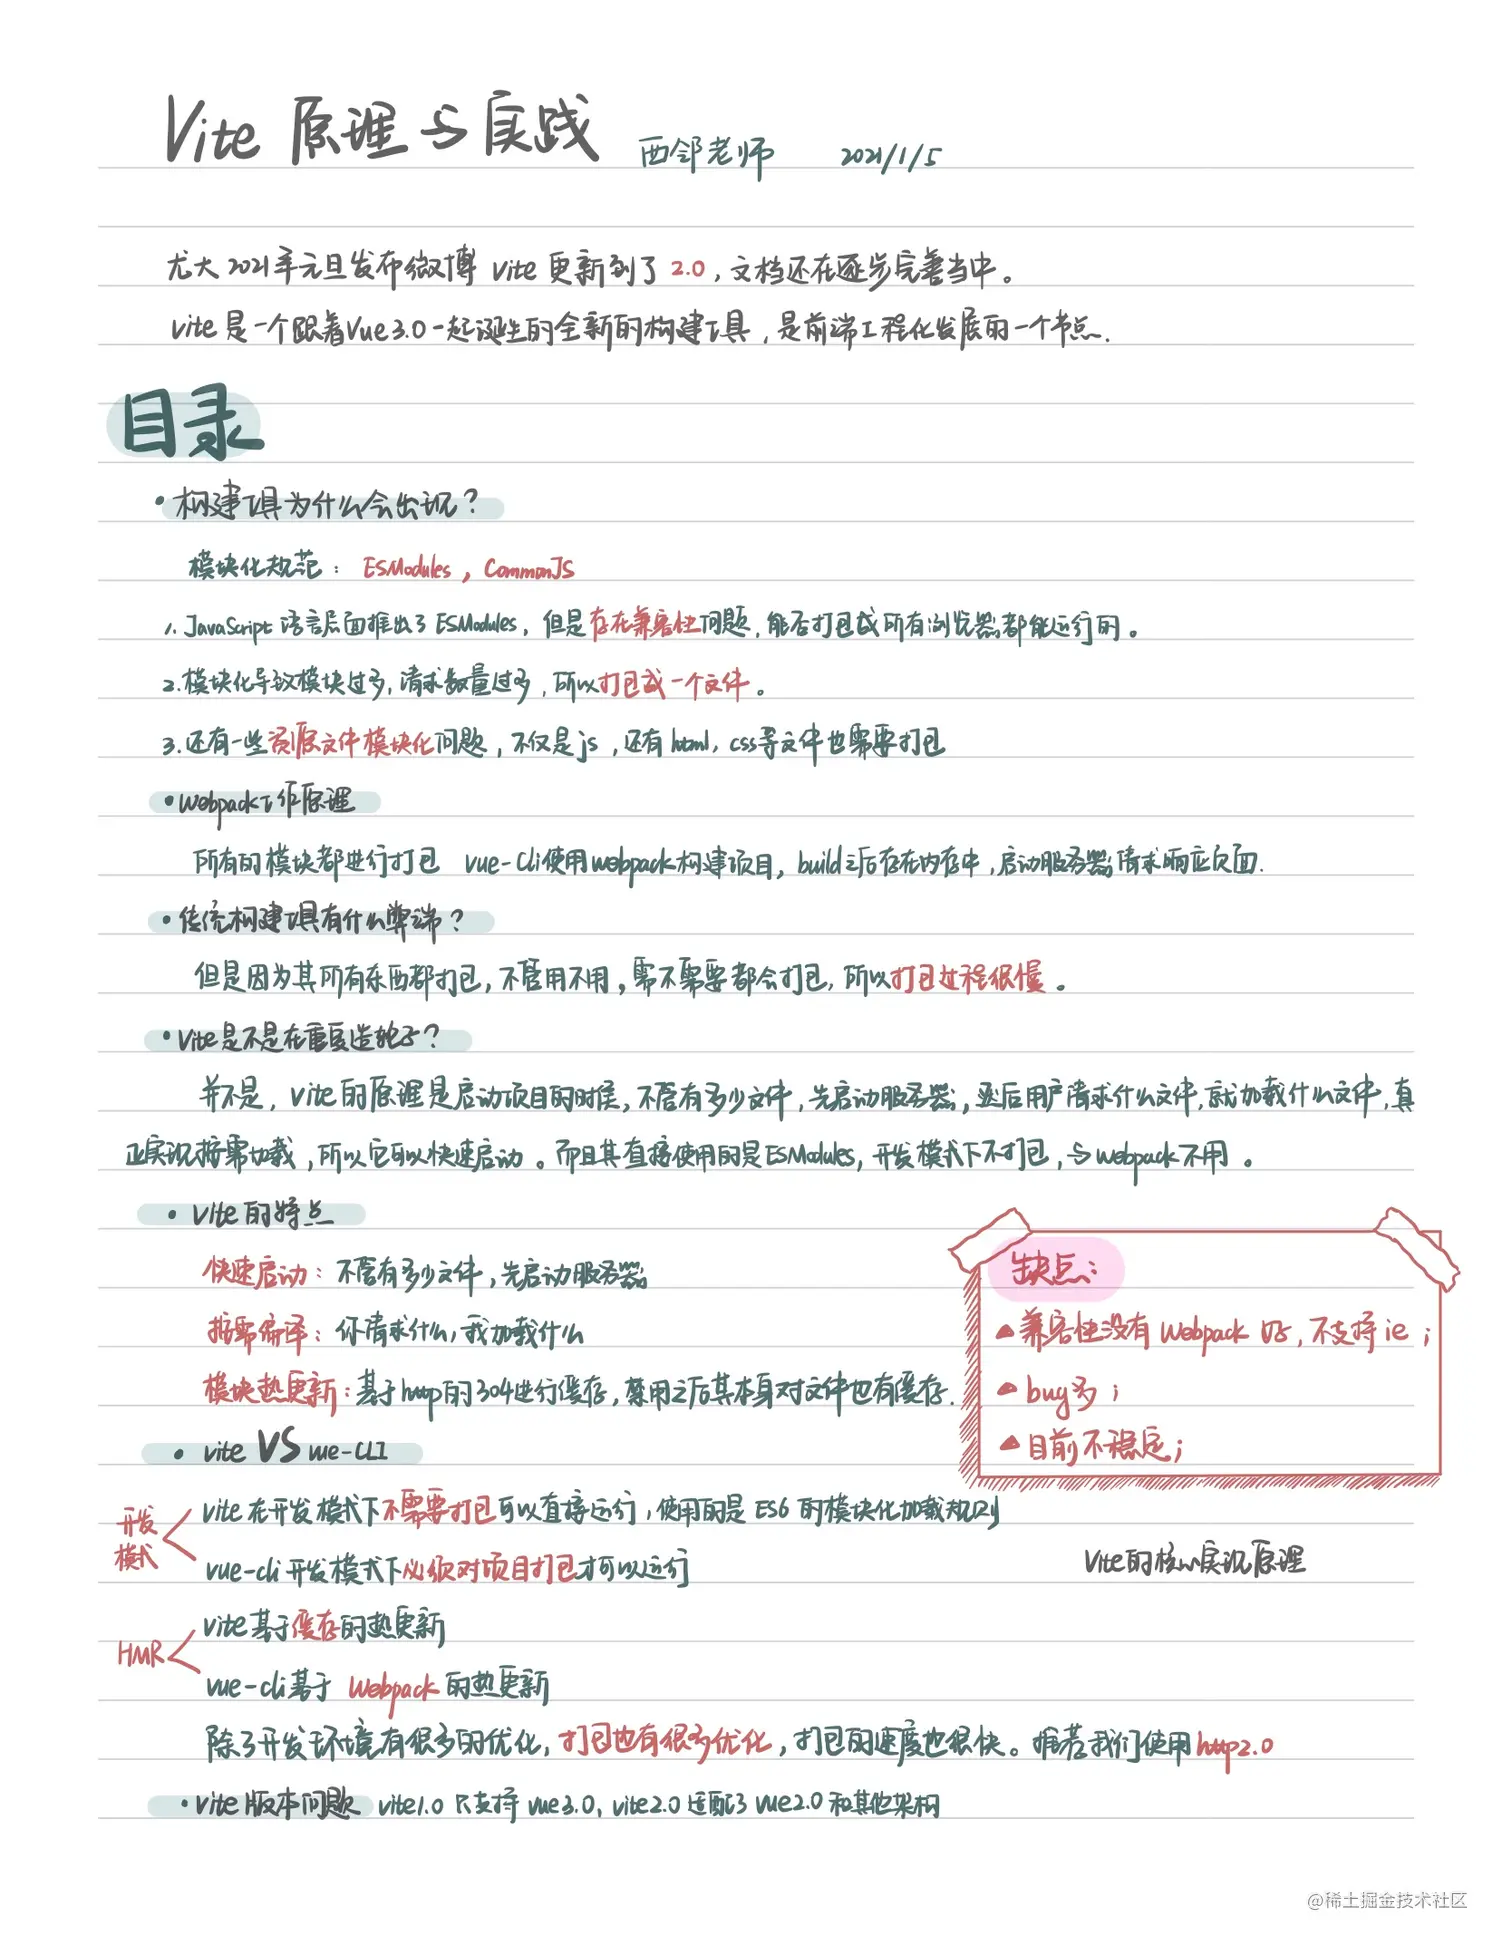 Vite 原理与实践 西邻老师 2021/1/5
尤大 2021年元旦发布微博 Vite 更新到了 2.0，文档还在逐步完善当中。
Vite 是一个跟着Vue3.0一起诞生的全新的构建工具，是前端工程化发展的一个节点.
目录
• 构建工具为什么会出现？
模块化规范： ESModules，CommonJS
1. JavaScript 语言层面推出了 ESModules，但是存在兼容性问题，能否打包成所有浏览器都能运行的。
2. 模块化导致模块过多，请求数量过多，所以打包成一个文件。
3. 还有一些资源文件模块化问题，不仅是js，还有 html，css等文件也需要打包
• Webpack工作原理
所有的模块都进行打包 vue-cli使用webpack构建项目，build之后存在内存中，启动服务器请求响应页面.
• 传统构建工具有什么弊端？
但是因为其所有东西都打包，不管用不用，需不需要都会打包，所以打包过程很慢。
• Vite是不是在重复造轮子？
并不是，Vite的原理是启动项目的时候，不管有多少文件，先启动服务器，然后用户请求什么文件，就加载什么文件，真
正实现按需加载，所以它可以快速启动。而且其直接使用的是ESModules，开发模式下不打包，与webpack不用。
• Vite 的特点
快速启动：不管有多少文件，先启动服务器
按需编译：你请求什么，我加载什么
模块热更新：基于http的304进行缓存，禁用之后其本身对文件也有缓存.
缺点：
▲兼容性没有 Webpack 好，不支持 ie；
▲bug多；
▲目前不稳定；
• vite VS vue-CLI
开发模式
Vite在开发模式下不需要打包可以直接运行，使用的是 ES6 的模块化加载规则
vue-cli 开发模式下必须对项目打包才可以运行
Vite的核心实现原理
HMR
Vite基于缓存的热更新
vue-cli基于 Webpack 的热更新
除了开发环境有很多的优化，打包也有很多优化，打包的速度也很快。推荐我们使用http2.0
• Vite版本问题 vite1.0 只支持 vue3.0，vite2.0 适配了 vue2.0 和其他架构
@稀土掘金技术社区